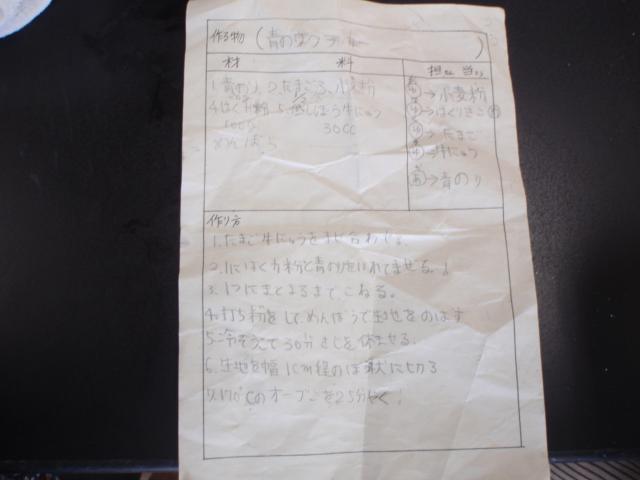 作る物 (青のりクラッカー)
材 料
担当
1.青のり、2.たまご3.小麦粉
4.はくりき粉 5. 牛にゅう
100g 30cc
めんぼう
→小麦粉
→はくりきこ
→たまご
→牛にゅう
→青のり
作り方
1.たまご牛にゅうをまぜ合わせる。
2.1にはく力粉と青のりをいれてまぜる。
3.1つにまとまるまで、こねる。
4.打ち粉をして、めんぼうで生地をのばす
5.冷ぞうこで30分きじを休ませる。
6.生地を幅1cm程のぼう状に切る
7.170℃のオーブンで25分やく!